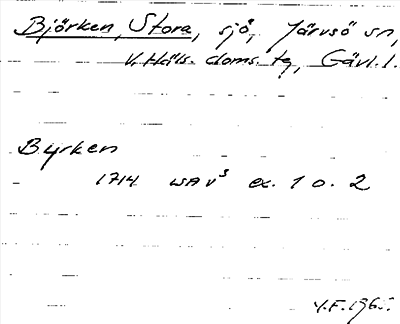 Björken, Stora, sjö, Järvsö sn,
V. Häls. doms. tg, Gävl. l.
Byrken
1714 WA v³ ex. 1 o. 2
Y.F. 196